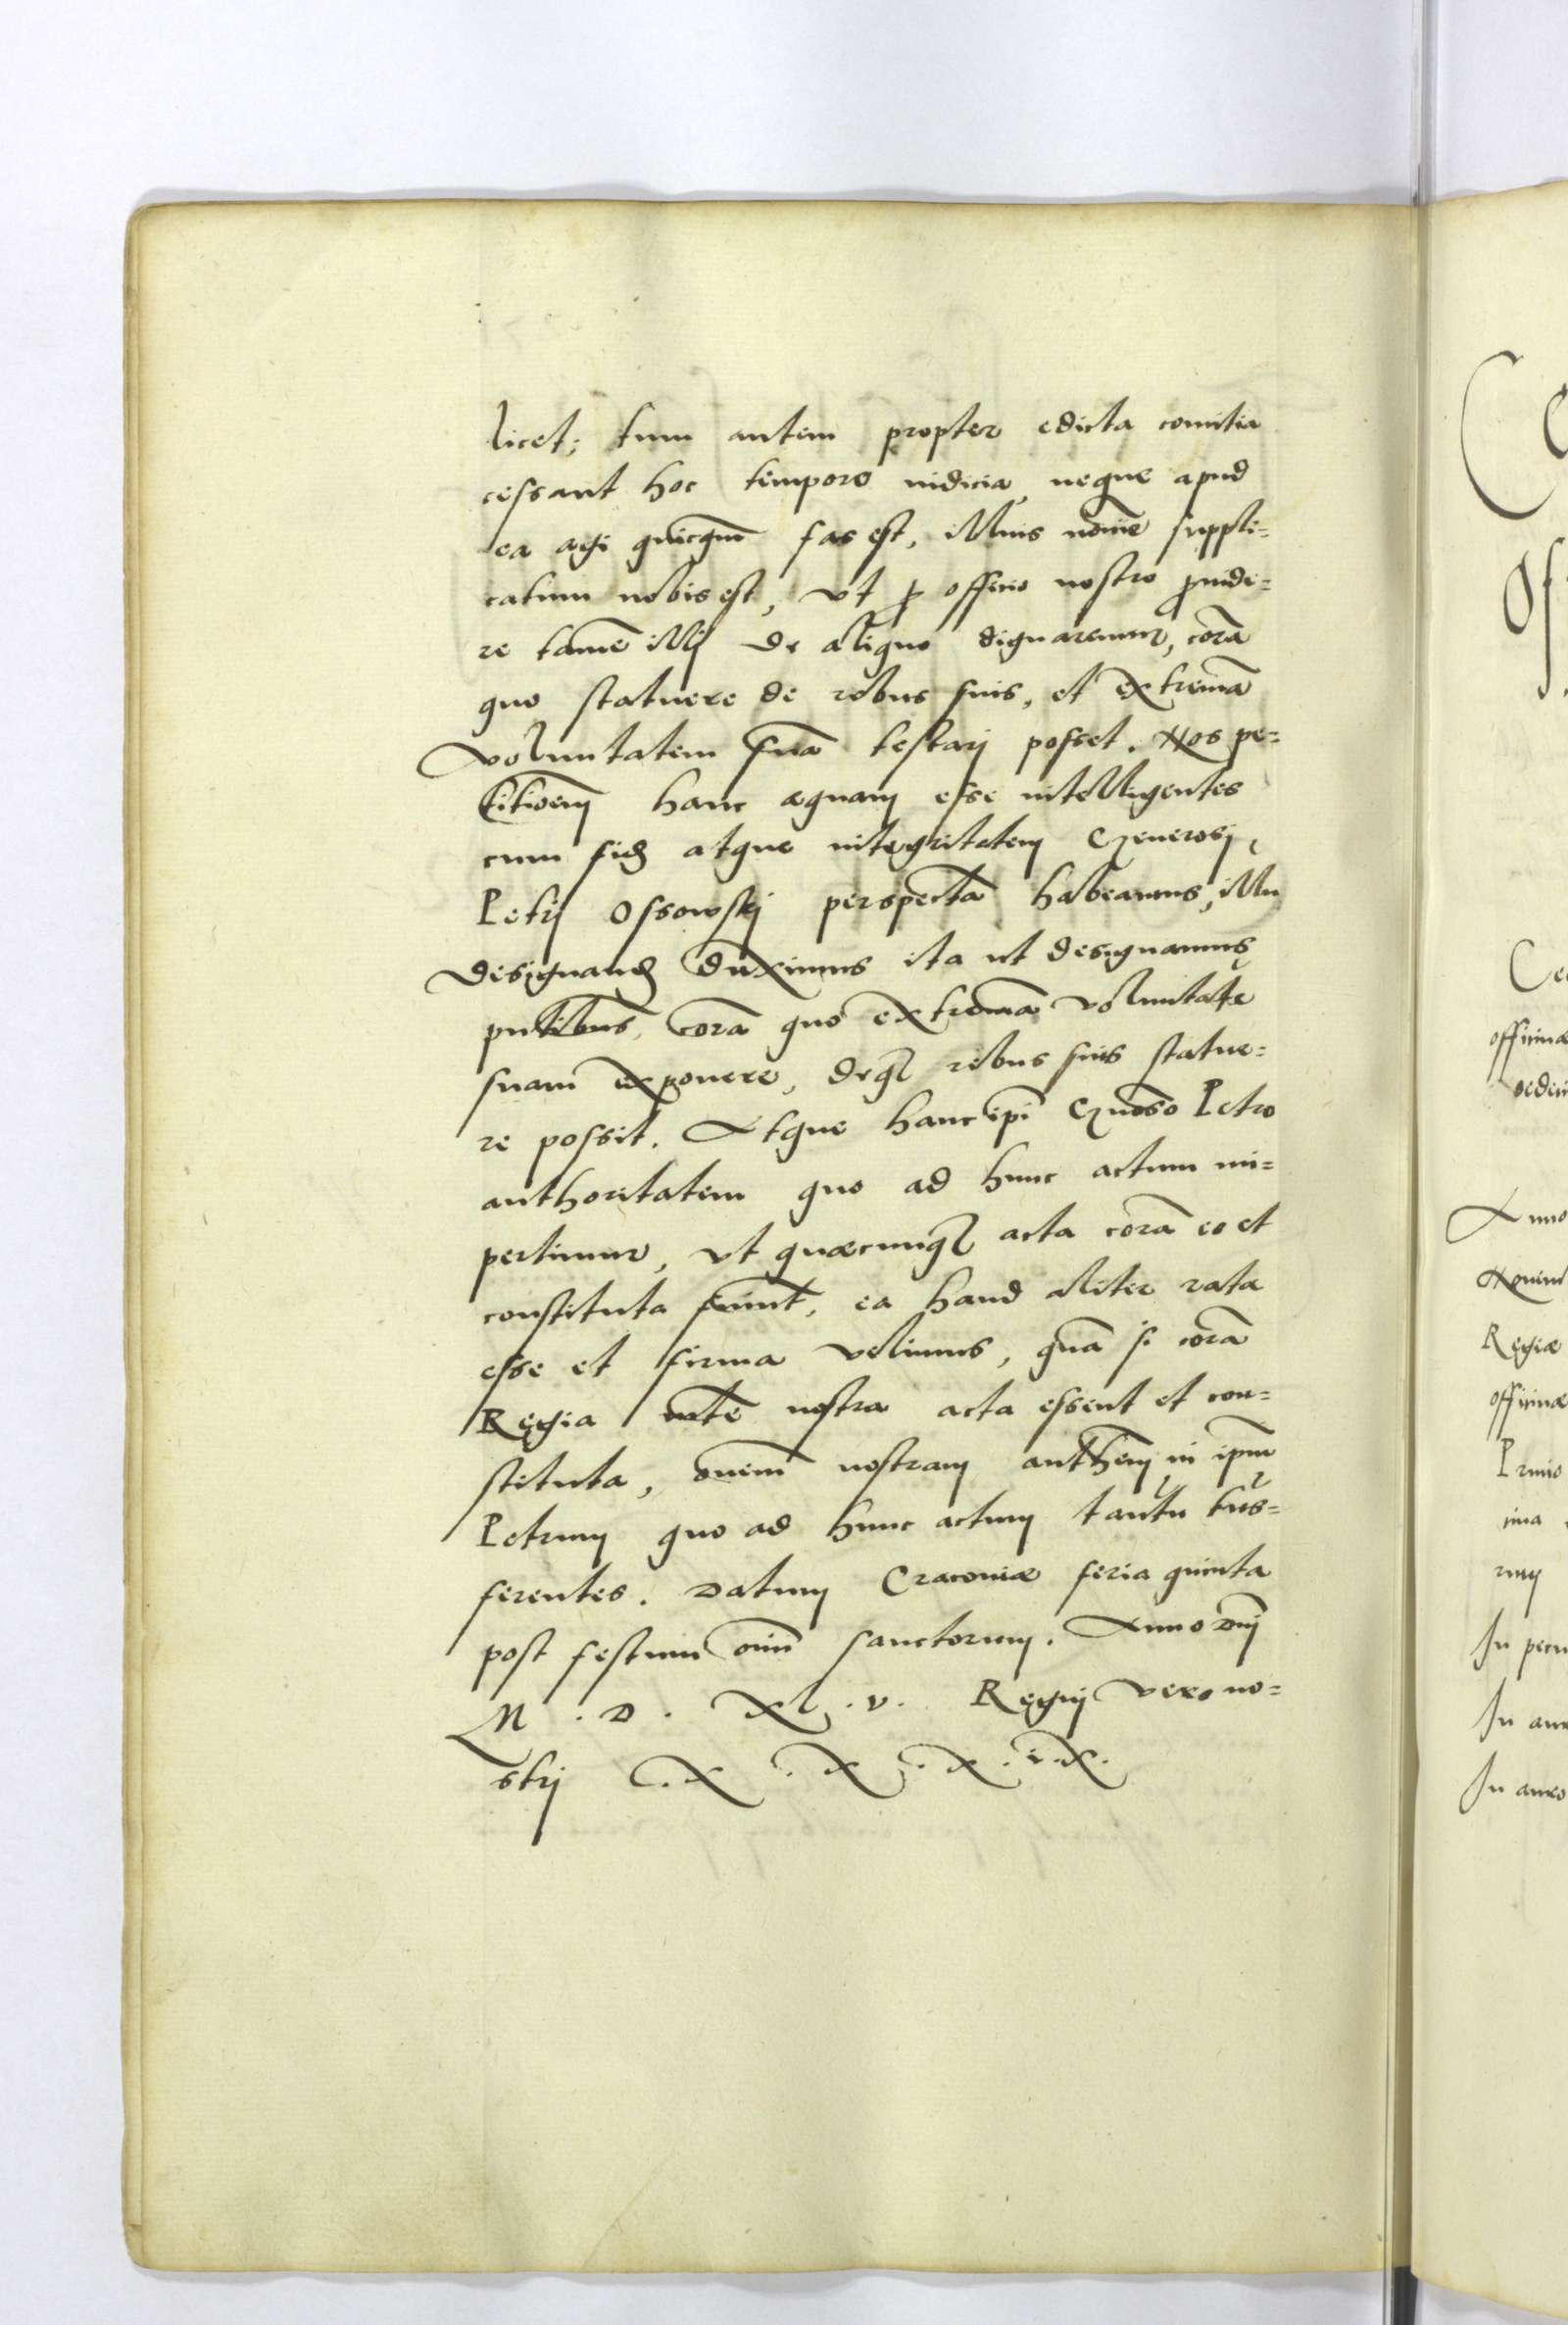 licet; tum autem propter edicta comitia
cessant hoc tempore iudicia, neque apud
ea agi quicquā fas est, illius nomīe suppli=
catum nobis est, vt ꝓ officio nostro ꝓuide=
re tamē illi de aliquo dignaremur, corā
quo statuere de rebus suis, et extremā
voluntatem suā testarj posset. Nos pe=
titioēm hanc æquam esse intelligentes
cum fidē atque integritatem Generosi
Petrj Ossowskj perspectā habeamus, illū
designandū duximus ita ut designamus
pntibus, corā quo extremā voluntatē
suam exponere, deq3 rebus suis statue=
re possit. Atque hanc ipi Gnoso Petro
authoritatem quo ad hunc actum im=
pertimur, vt quæcunq3 acta corā eo et
constituta fuerint, ea haud aliter rata
esse et firma velimus, quā si corā
Regia mte nostra acta essent et con=
stituta, omnem nostram authēm in ipm
Petrum quo ad hunc actum tantū trās=
ferentes. Datum Cracouiæ feria quinta
post festum oīm sanctorum. Anno Dnj
M . D . XL . v . Regnj vero no=
strj . X . X . X . i . X .
Anno
Regiæ
officinæ
In
In
In auro